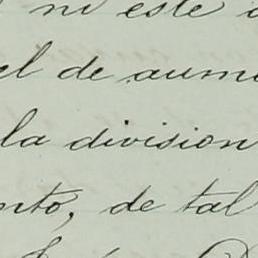 ni este
el de aume
la division
nto, de tal